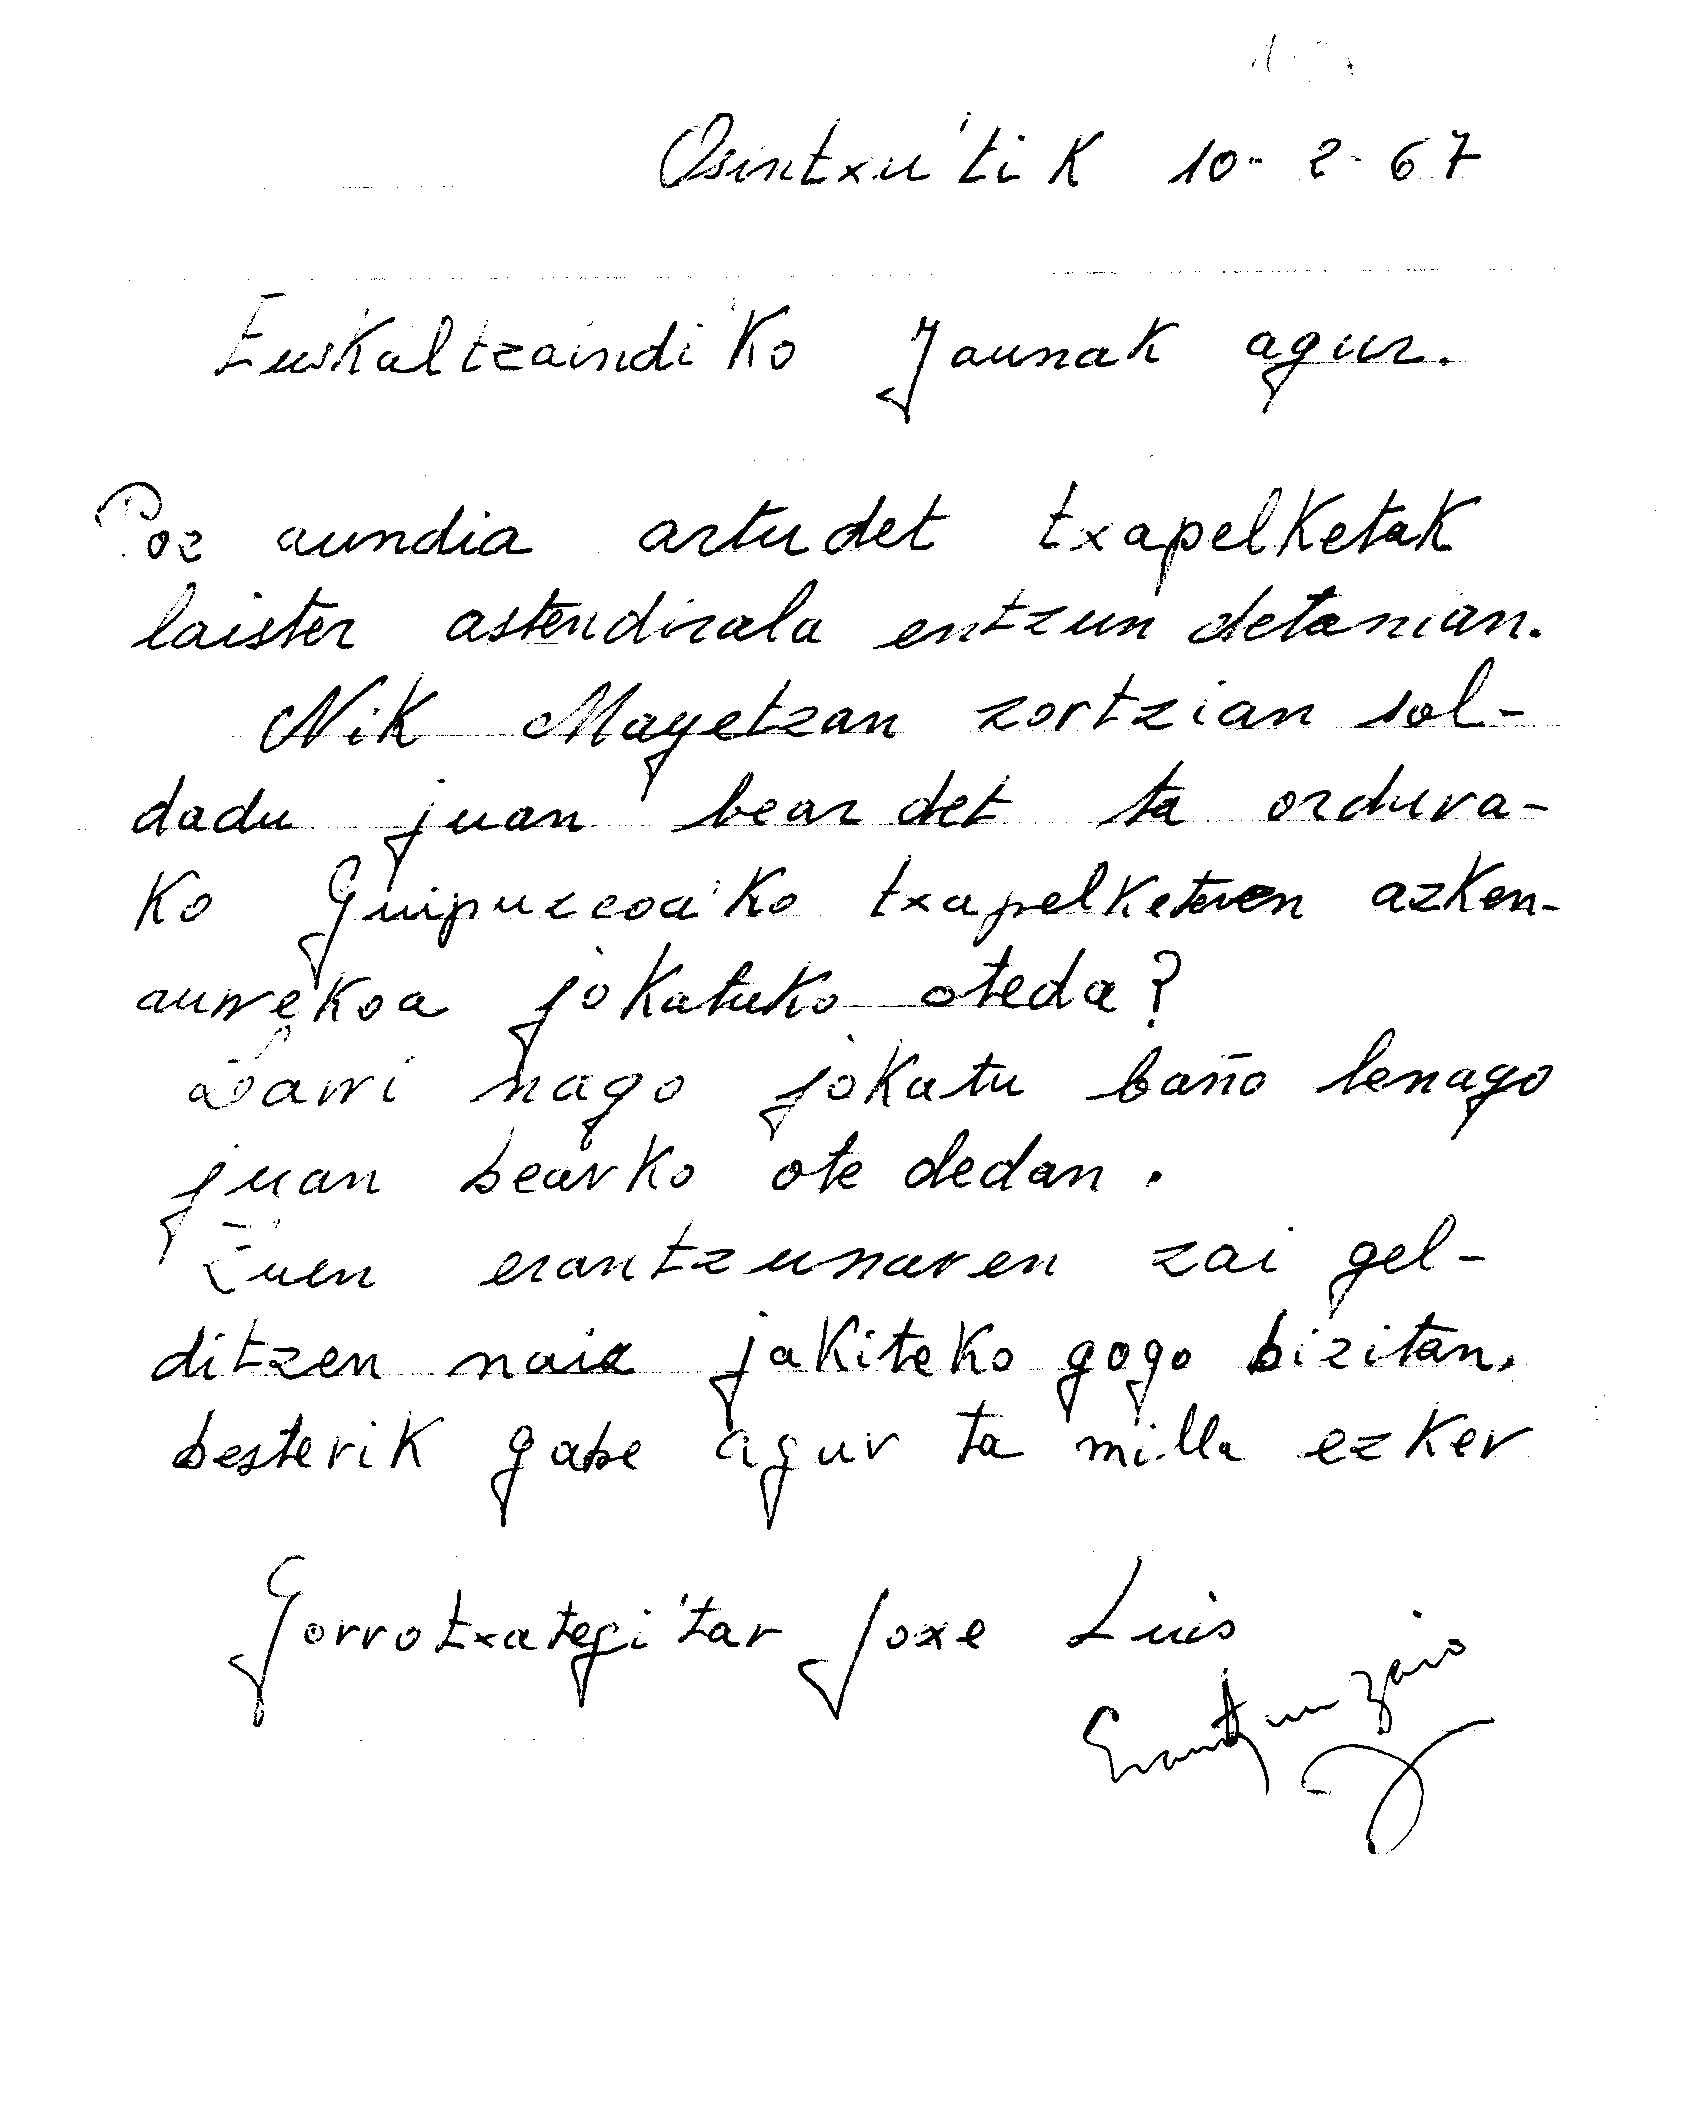 Osintxu'tik 10-2-67
Euskaltzaindi'ko Jaunak agur.
Poz aundia artudet txapelketak
laister astendirala entzun detanian.
Nik Mayetzan zortzian sol-
dadu juan bear det ta ordura-
ko Guipuzcoa'ko txapelketaren azken-
aurrekoa jokatuko oteda?
Larri nago jokatu baño lenago
juan bearko ote dedan.
Zuen erantzunaren zai gel-
ditzen naiz jakiteko gogo bizitan,
besterik gabe agur ta milla ezker
Gorrotxategi'tar Joxe Luis
Erantzun zaio